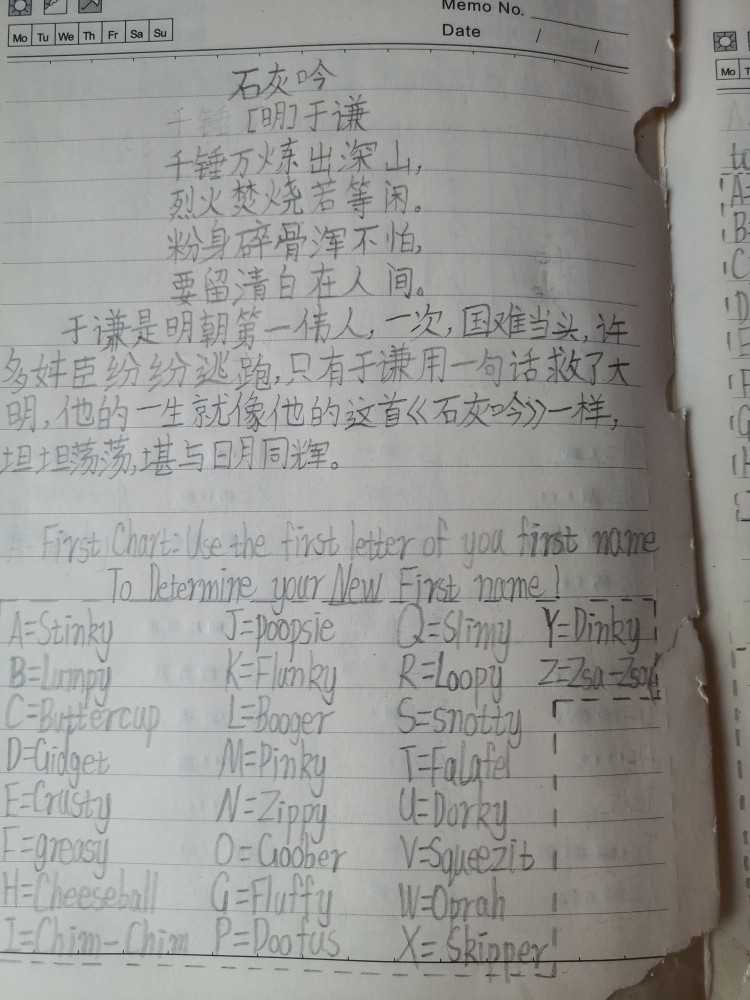 Memo No.
Mo Tu We Th Fr Sa Su
Date / /
石灰吟
千锤 [明]于谦
千锤万炼出深山,
烈火焚烧若等闲。
粉身碎骨浑不怕,
要留清白在人间。
于谦是明朝第一伟人,一次,国难当头,许
多奸臣纷纷逃跑,只有于谦用一句话救了大
明,他的一生就像他的这首《石灰吟》一样,
坦坦荡荡,堪与日月同辉。
First Chart: Use the first letter of you first name
To Determine your New First name!
A=Stinky J=poopsie Q=Slimy Y=Dinky
B=Lumpy K=Flunky R=Loopy Z=Zsa-Zsa
C=Buttercup L=Booger S=snotty
D=Gidget M=Pinky T=Falafel
E=Crusty N=Zippy U=Dorky
F=greasy O=Goober V=Squeezit
H=Cheeseball G=Fluffy W=Oprah
I=Chim-Chim P=Doofus X=Skipper
Mo T
to
A-
B-
C
D
E
F
G
H